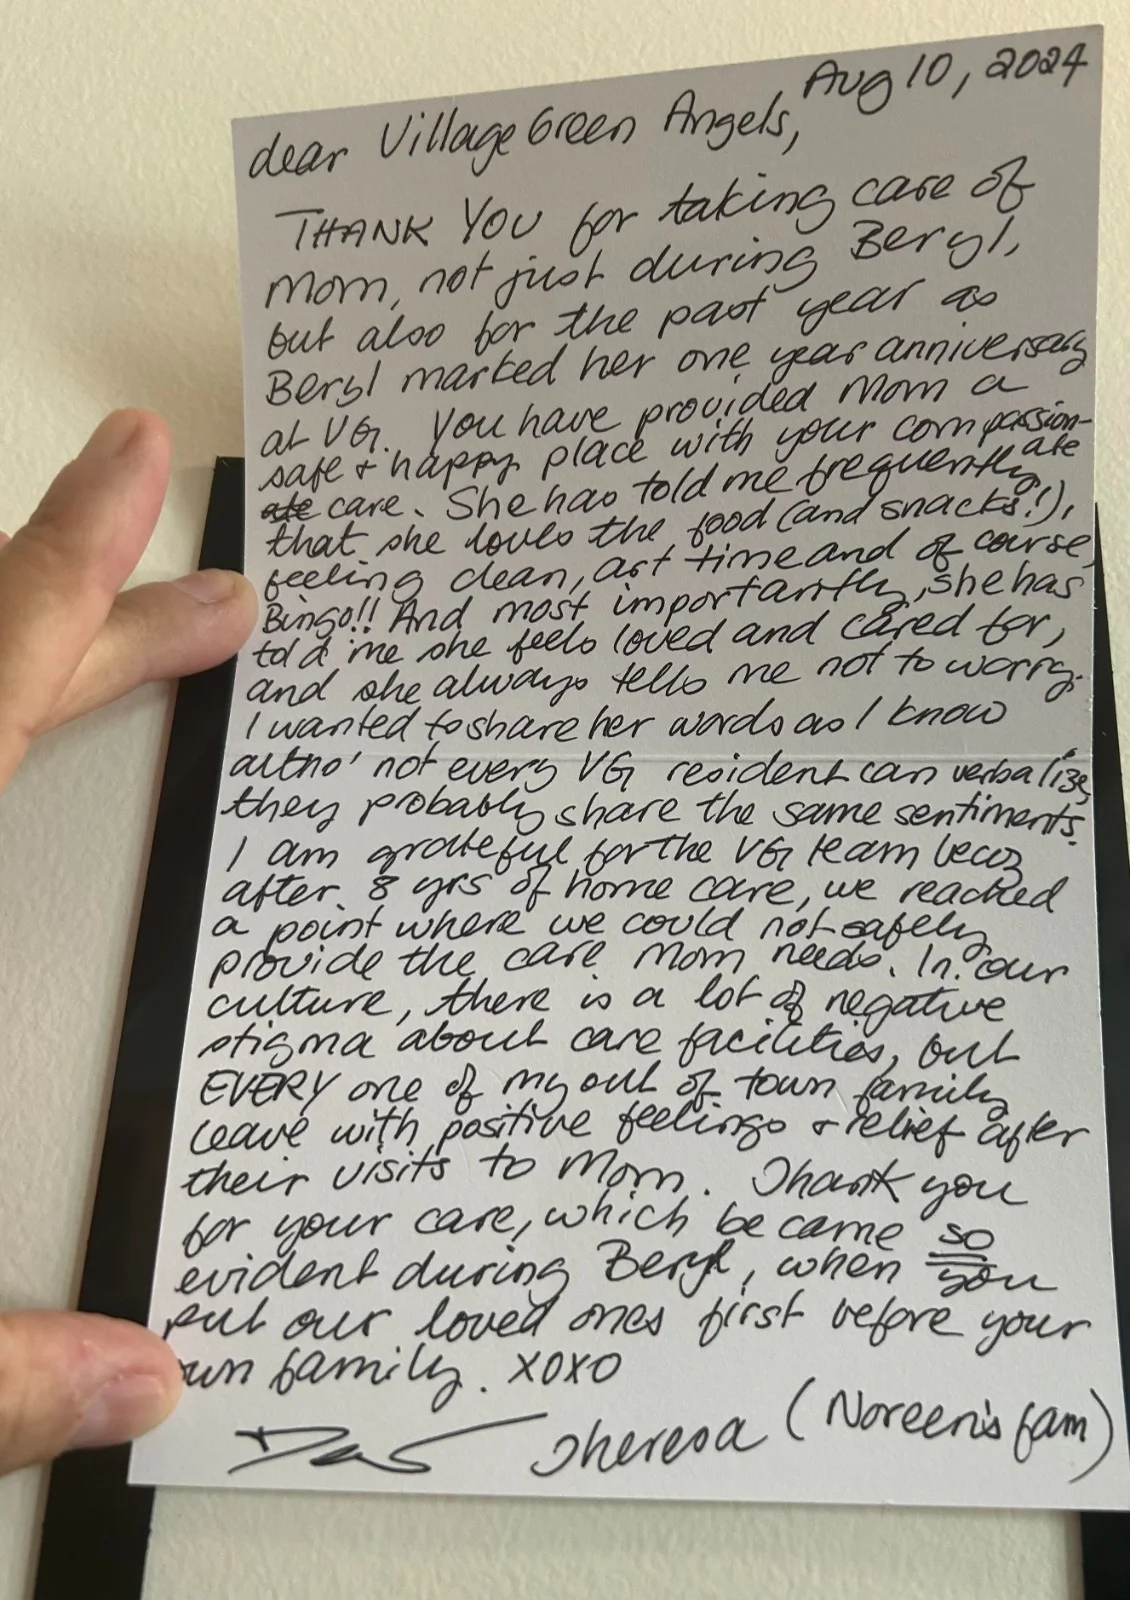 Aug 10, 2024
dear Village Green Angels,
THANK YOU for taking care of
Mom, not just during Beryl,
but also for the past year as
Beryl marked her one year anniversary
at VG. You have provided Mom a
safe + happy place with your compassion-
ate
ate care. She has told me frequently
that she loves the food (and snacks!),
feeling clean, art time and of course,
Bingo!! And most importantly, she has
told me she feels loved and cared for,
and she always tells me not to worry.
I wanted to share her words as I know
altho' not every VG resident can verbalize,
they probably share the same sentiments.
I am grateful for the VG team becuz
after 8 yrs of home care, we reached
a point where we could not safely
provide the care Mom needs. In our
culture, there is a lot of negative
stigma about care facilities, but
EVERY one of my out of town family
leave with positive feelings + relief after
their visits to Mom. Thank you
for your care, which became so
evident during Beryl, when you
put our loved ones first before your
own family. XOXO
Theresa (Noreen's fam)